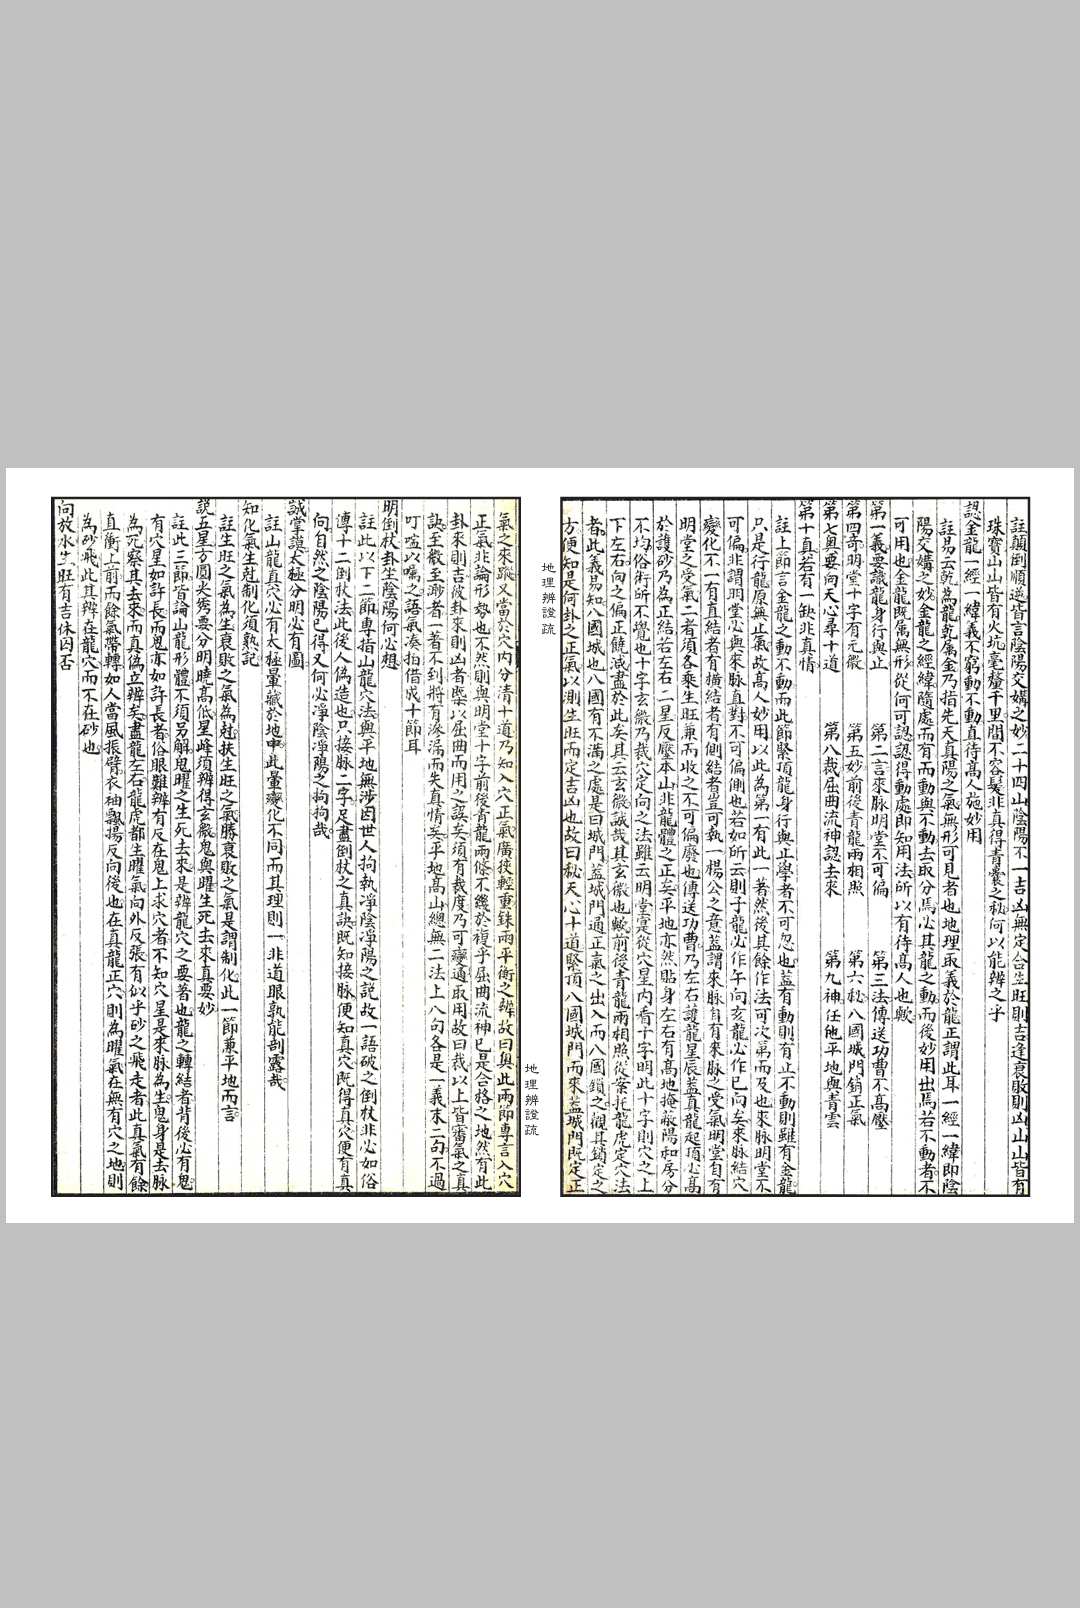 註顛倒順逆皆言陰陽交媾之妙二十四山陰陽不一吉凶無定合生旺則吉逢衰敗則凶山山皆有
珠寶山山皆有火坑毫釐千里間不容髮非真得青囊之秘何以能辨之乎
認金龍一經一緯義不窮動不動直待高人施妙用
註易云乾為龍乾属金乃指先天真陽之氣無形可見者也地理取義於龍正謂此耳一經一緯即陰
陽交媾之妙金龍之經緯隨處而有而動與不動去取分焉必其龍之動而後妙用出焉若不動者不
可用也金龍既属無形從何可認認得動處即知用法所以有待高人也歟
第一義要識龍身行與止　第二言來脉明堂不可偏　第三法傳送功曹不高壓
第四奇明堂十字有元微　第五妙前後青龍兩相照　第六秘八國城門鎖正氣
第七奥要向天心尋十道　第八裁屈曲流神認去來　第九神任他平地與青雲
第十真若有一缺非真情
註上節言金龍之動不動而此節緊頂龍身行與止學者不可忽也蓋有動則有止不動則雖有金龍
只是行龍原無止氣故高人妙用以此為第一有此一著然後其餘作法可次第而及也來脉明堂不
可偏非謂明堂必與來脉直對不可偏側也若如所云則子龍必作午向亥龍必作巳向矣來脉結穴
變化不一有直結者有橫結者有側結者豈可執一楊公之意蓋謂來脉自有來脉之受氣明堂自有
明堂之受氣二者須各乘生旺兼而收之不可偏廢也傳送功曹乃左右護龍星辰蓋真龍起頂必高
於護砂乃為正結若左右二星反壓本山非龍體之正矣平地亦然貼身左右有高地掩蔽陽和房分
不均俗術所不覺也十字玄微乃裁穴定向之法雖云明堂寔從穴星内看十字明此十字則穴之上
下左右向之偏正饒減盡於此矣其云玄微誠哉其玄微也歟前後青龍兩相照從案托龍虎定穴法
者此義易知八國城也八國有不滿之處是曰城門蓋城門通正氣之出入而八國鎖之觀其鎖定之
方便知是何卦之正氣以測生旺而定吉凶也故曰秘天心十道緊頂八國城門而來蓋城門既定正
地理辨證疏
氣之來蹤又當於穴内分清十道乃知入穴正氣廣狹輕重銖兩平衡之辨故曰奥此兩節專言入穴
正氣非論形勢也不然則與明堂十字前後青龍兩條不幾於複乎屈曲流神已是合格之地然有此
卦來則吉彼卦來則凶者槩以屈曲而用之誤矣須有裁度乃可變通取用故曰裁以上皆審氣之真
訣至微至渺者一著不到將有滲漏而失真情矣平地高山總無二法上八句各是一義末二句不過
叮嚀以囑之語氣湊拍借成十節耳
明倒杖卦坐陰陽何必想
註此以下二節專指山龍穴法與平地無涉因世人拘執淨陰淨陽之說故一語破之倒杖非必如俗
傳十二倒杖法此後人偽造也只接脉二字足盡倒杖之真訣既知接脉便知真穴既得真穴便有真
向自然之陰陽已得又何必淨陰淨陽之拘拘哉
誠掌證太極分明必有圖
註山龍真穴必有太極暈藏於地中此暈變化不同而其理則一非道眼孰能剖露哉
知化氣生尅制化須熟記
註生旺之氣為生衰敗之氣為尅扶生旺之氣勝衰敗之氣是謂制化此一節兼平地而言
説五星方圓尖秀要分明曉高低星峰須辨得玄微鬼與曜生死去來真要妙
註此三節皆論山龍形體不須另解鬼曜之生死去來是辨龍穴之要著也龍之轉結者背後必有鬼
有穴星如許長而鬼亦如許長者俗眼難辨有反在鬼上求穴者不知穴星是來脉為生鬼身是去脉
為死察其去來而真偽立辨矣盡龍左右龍虎都生曜氣向外反張有似乎砂之飛走者此真氣有餘
直衝上前而餘氣帶轉如人當風振臂衣袖飄揚反向後也在真龍正穴則為曜氣在無有穴之地則
為砂飛此其辨在龍穴而不在砂也
向放水生旺有吉休囚否
地理辨證疏